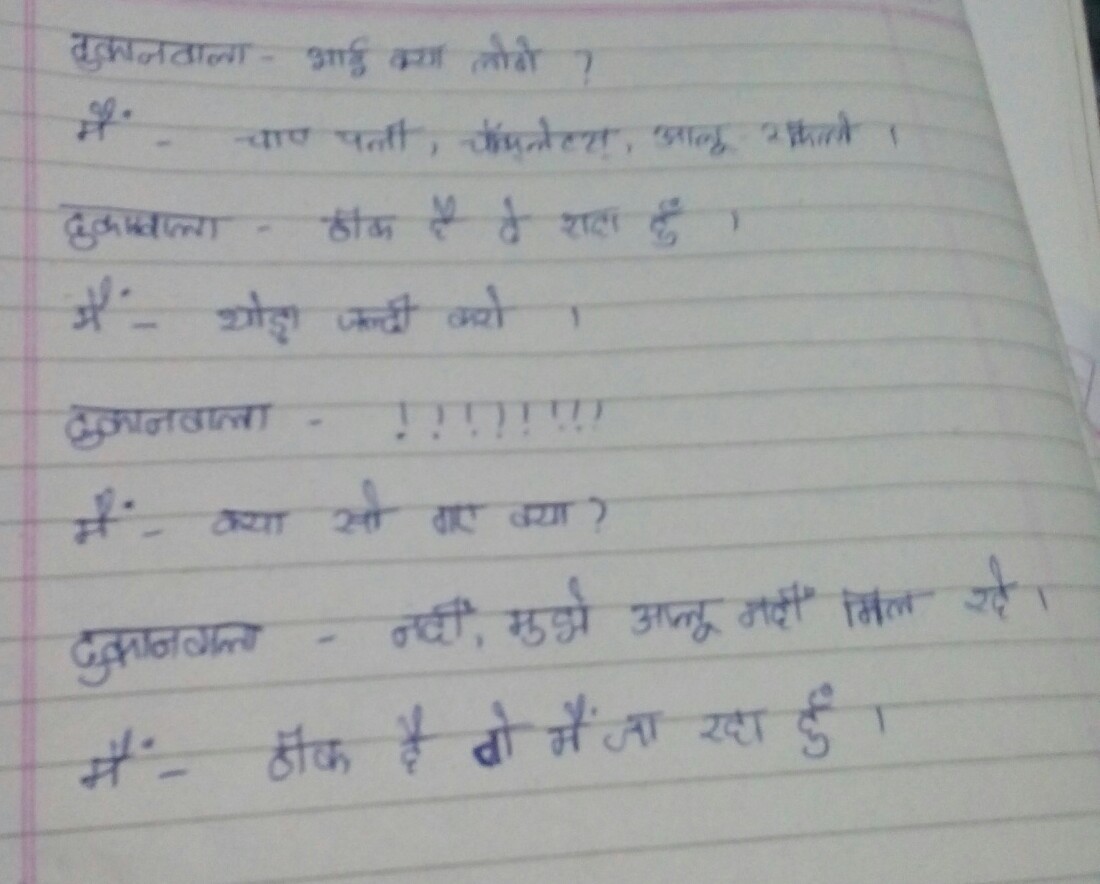 दुकानवाला - भाई क्या लोगे ?
मैं - चाय पत्ती, चॉकलेटस, आलू २ किलो ।
दुकानवाला - ठीक है दे रहा हूँ ।
मैं - थोड़ा जल्दी करो ।
दुकानवाला - !!!!!!!!
मैं - क्या सो गए क्या?
दुकानवाला - नहीं, मुझे आलू नहीं मिल रहे ।
मैं - ठीक है तो मैं जा रहा हूँ ।